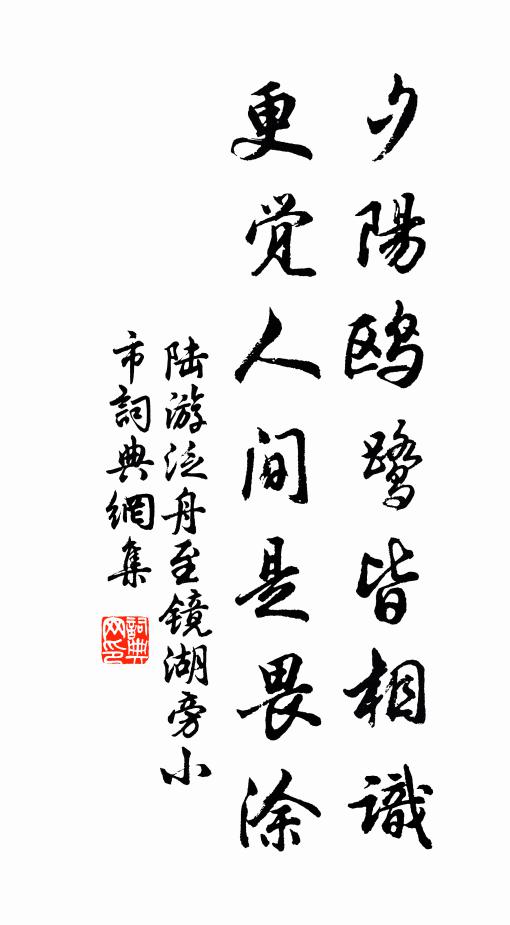 夕陽鸥鹭皆相識
更觉人间是畏涂
陆游泛舟至镜湖旁小
市詞典網集
詞典网印